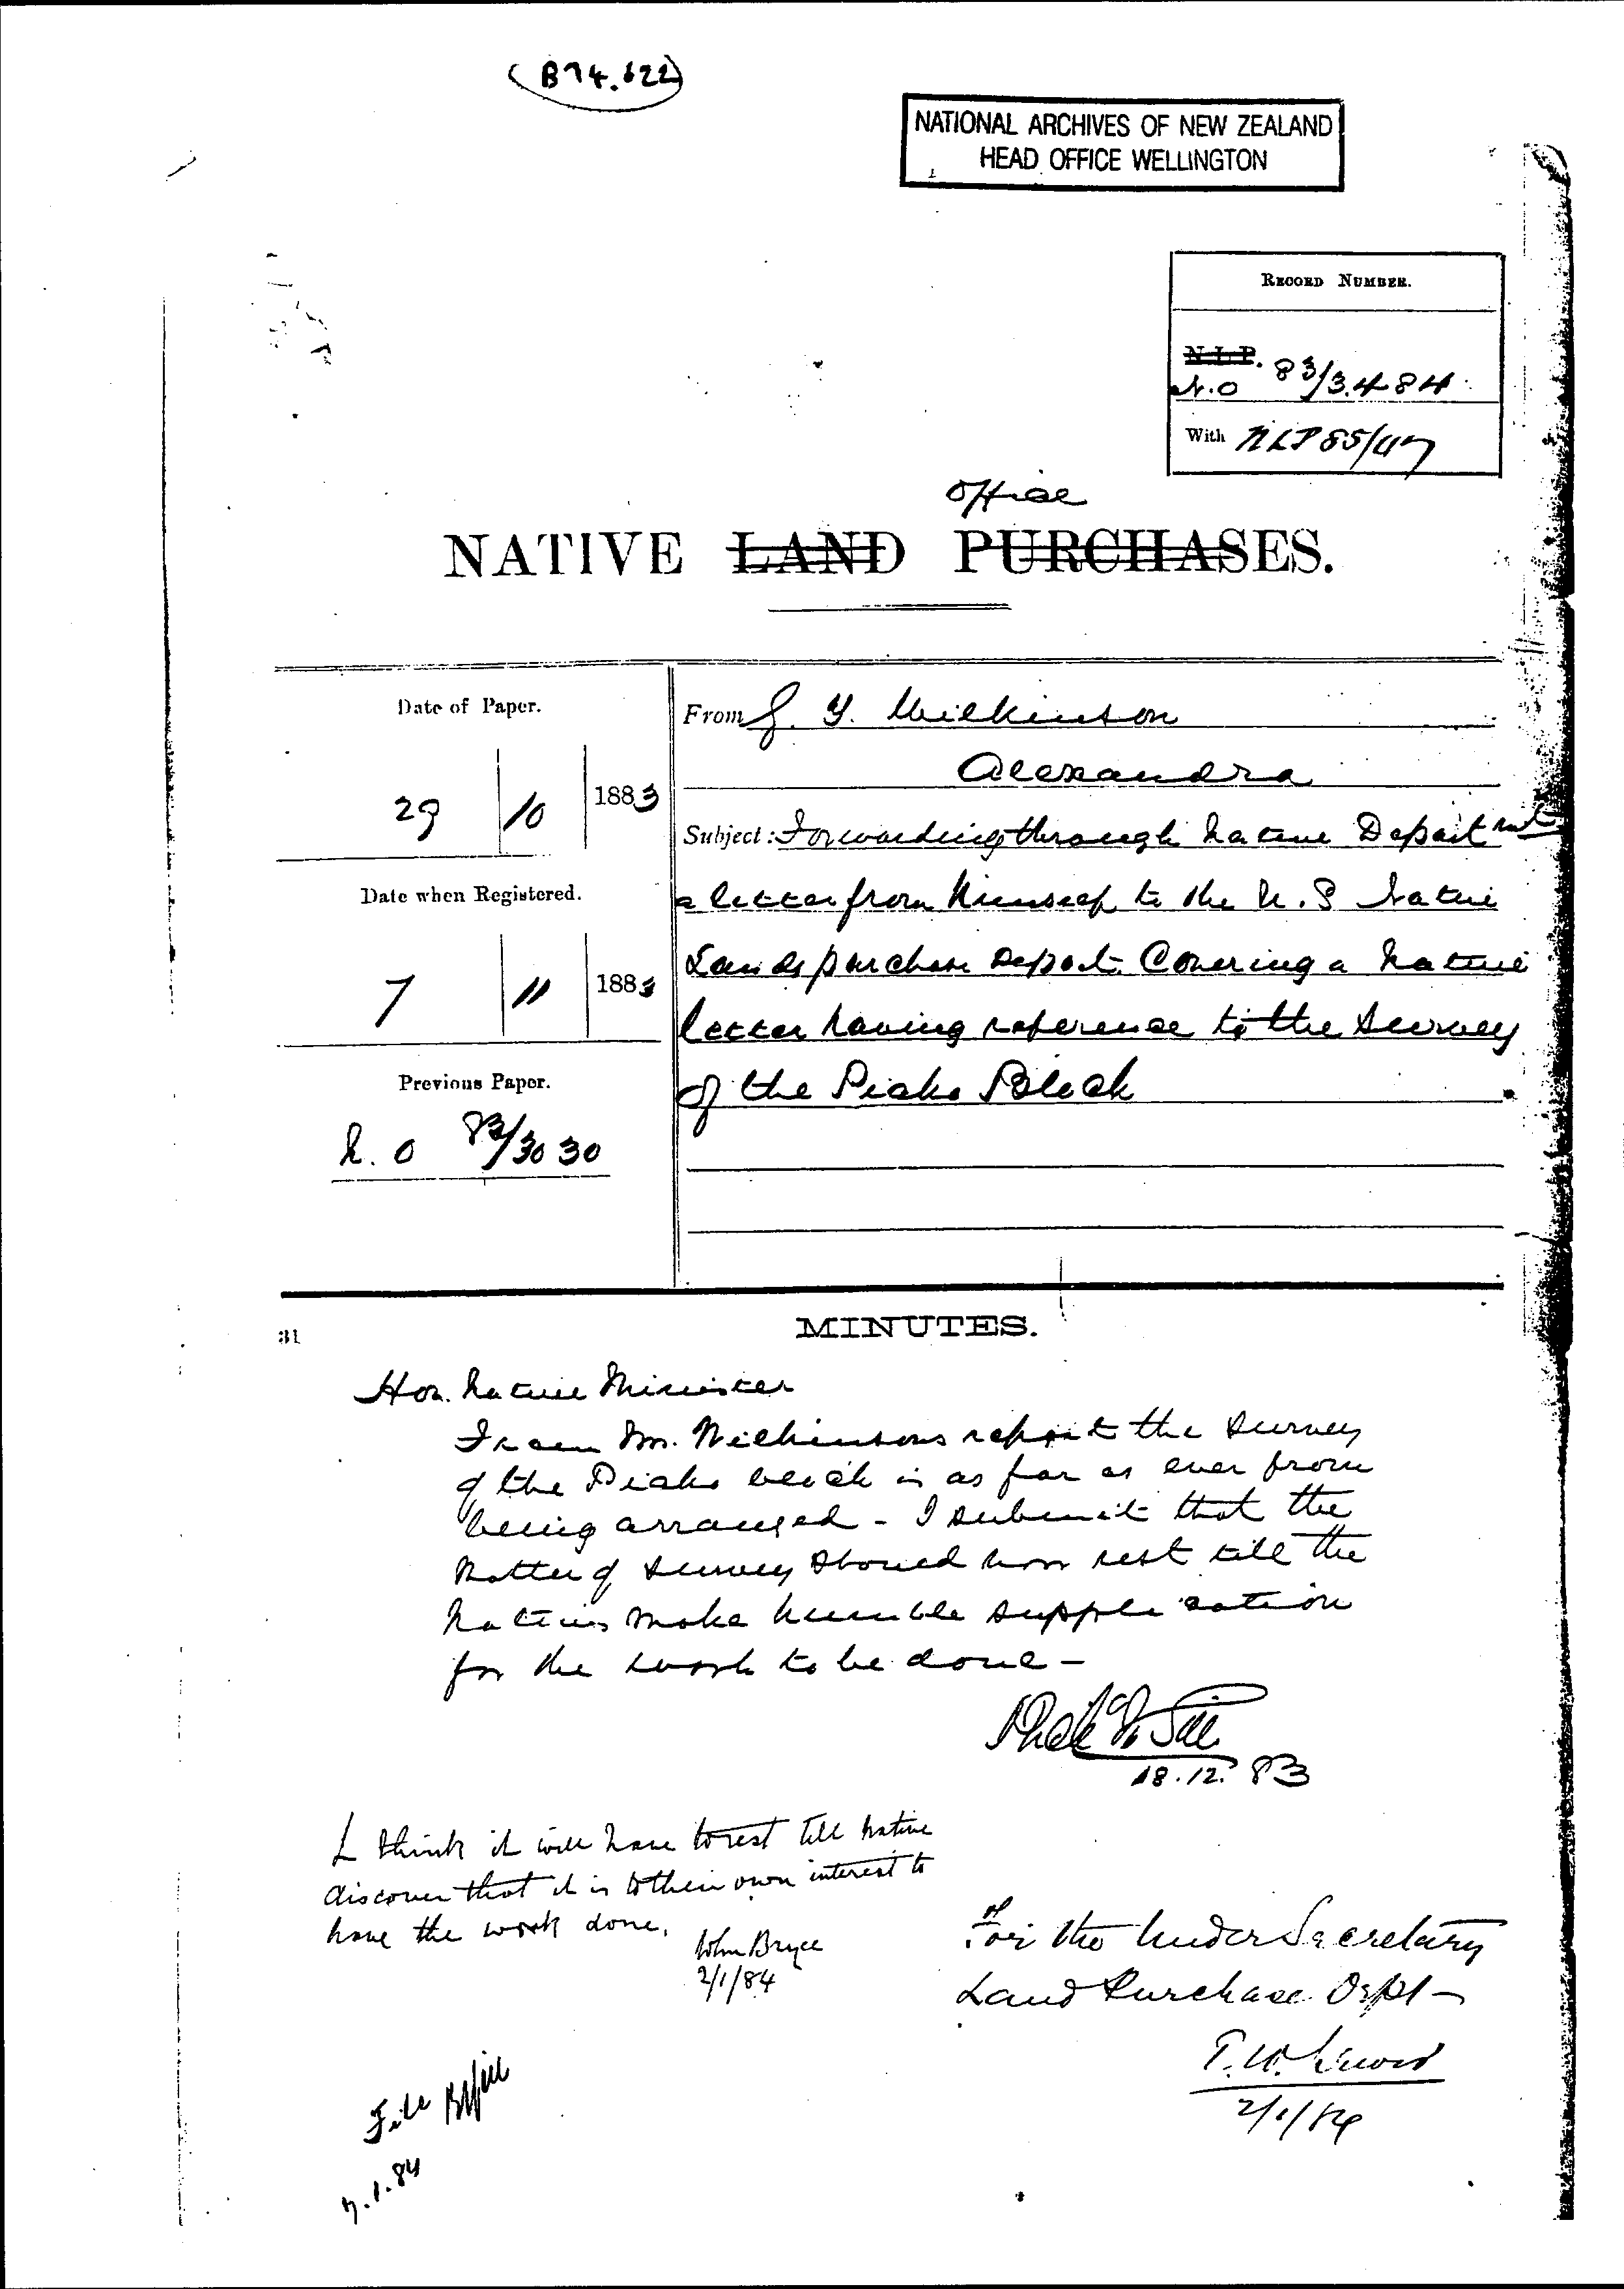 (B94.622)
NATIONAL ARCHIVES OF NEW ZEALAND
HEAD OFFICE WELLINGTON
RECORD NUMBER.
N.L.P.
N.O 83/3484
With NLP 85/47
office
NATIVE LAND PURCHASES.
Date of Paper.
29 10 1883
Date when Registered.
7 11 1883
Previous Paper.
N.O 83/3030
From G. T. Wilkinson
Alexandra
Subject: Forwarding through Native Department
a letter from himself to the U.S Native
Lands purchase Depart. Covering a Native
letter having reference to the survey
of the Piako Block
31
MINUTES.
Hon. Native Minister
From Mr. Wilkinsons report the survey
of the Piako block is as far as ever from
being arranged - I submit that the
matter of survey should now rest till the
natives make humble supplication
for the work to be done -
18.12.83
I think it will have to rest till natives
discover that it is to their own interest to
have the work done.
John Bryce
2/1/84
For the Under Secretary
Land Purchase Dept -
T.W. Lewis
2/1/84
File
7.1.84